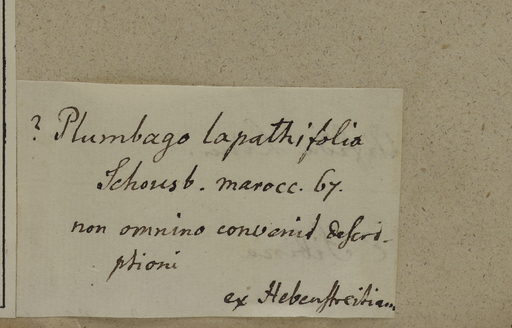 ? Plumbago lapathifolia
Schousb. marocc. 67.
non omnino convenit descri-
ptioni
ex Hebenstreitiam